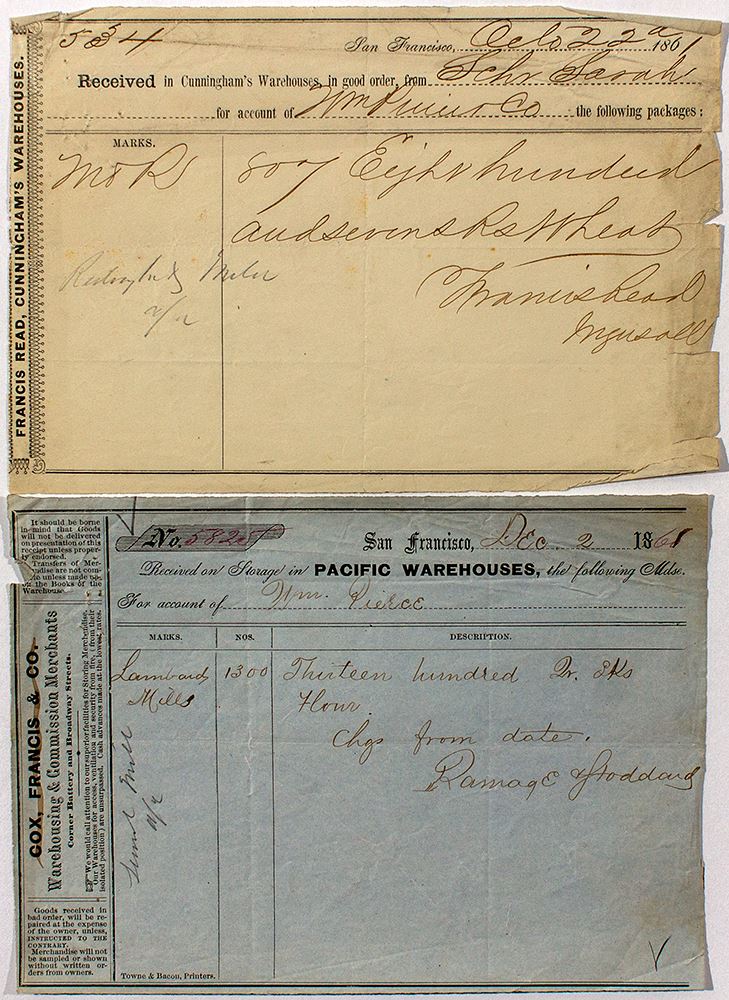 FRANCIS READ, CUNNINGHAM'S WAREHOUSES.
534
San Francisco, Octo 22d 1861
Received in Cunningham's Warehouses, in good order, from Schr Sarah
for account of Wm Pierce & Co the following packages:
MARKS.
M & R
807 Eight hundred
and seven Sks Wheat
Francis Read
Ingersoll
It should be borne
in mind that Goods
will not be delivered
on presentation of this
receipt unless proper-
ly endorsed.
Transfers of Mer-
chandise are not com-
plete unless made up-
on the Books of the
Warehouse.
COX, FRANCIS & CO.
Warehousing & Commission Merchants
Corner Battery and Broadway Streets.
We would call attention to our superior facilities for Storing Merchandise.
Our Warehouses for access, ventilation and security from fire, (from their
isolated position) are unsurpassed. Cash advances made at the lowest rates.
Goods received in
bad order, will be re-
paired at the expense
of the owner, unless,
INSTRUCTED TO THE
CONTRARY.
Merchandise will not
be sampled or shown
without written or-
ders from owners.
No. 5825 San Francisco, Dec. 2 1861
Received on Storage in PACIFIC WAREHOUSES, the following Mdse.
For account of Wm. Pierce
MARKS. NOS. DESCRIPTION.
Lambard 1300 Thirteen hundred Qr. Sks
Mills Flour.
Chgs from date.
Ramage & Stoddard
Towne & Bacon, Printers.